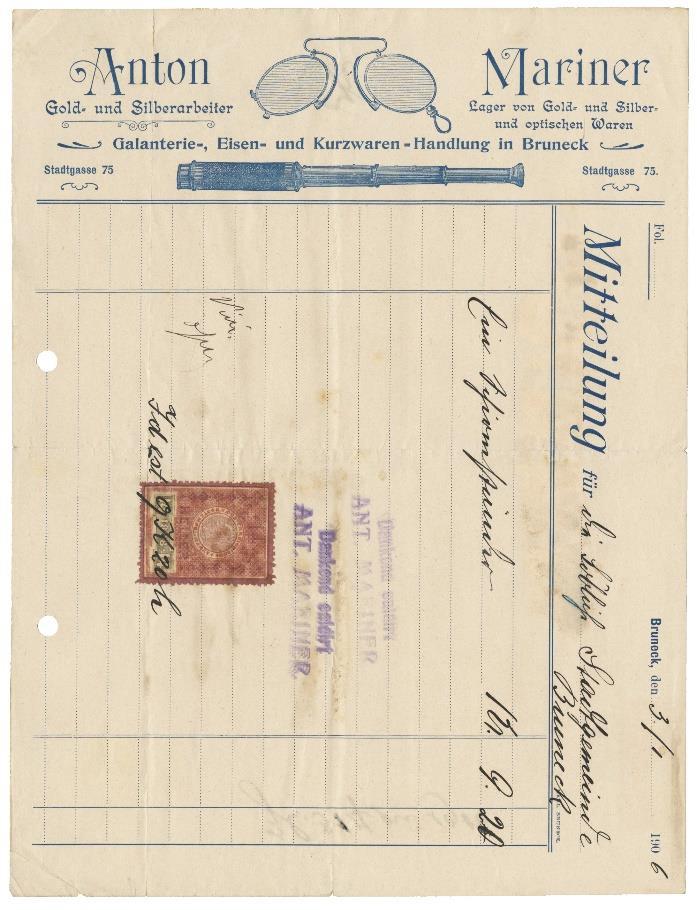 Anton Mariner
Gold- und Silberarbeiter
Lager von Gold- und Silber-
und optischen Waren
Galanterie-, Eisen- und Kurzwaren-Handlung in Bruneck
Stadtgasse 75
Stadtgasse 75.
Fol.
Bruneck, den 3./1 1906
Mitteilung für die löbliche Stadtgemeinde
Bruneck
Ein Kr. 9. 20
Dankend
ANT. MARINER
Dankend
ANT. MARINER.
Idest 9 K 20 h